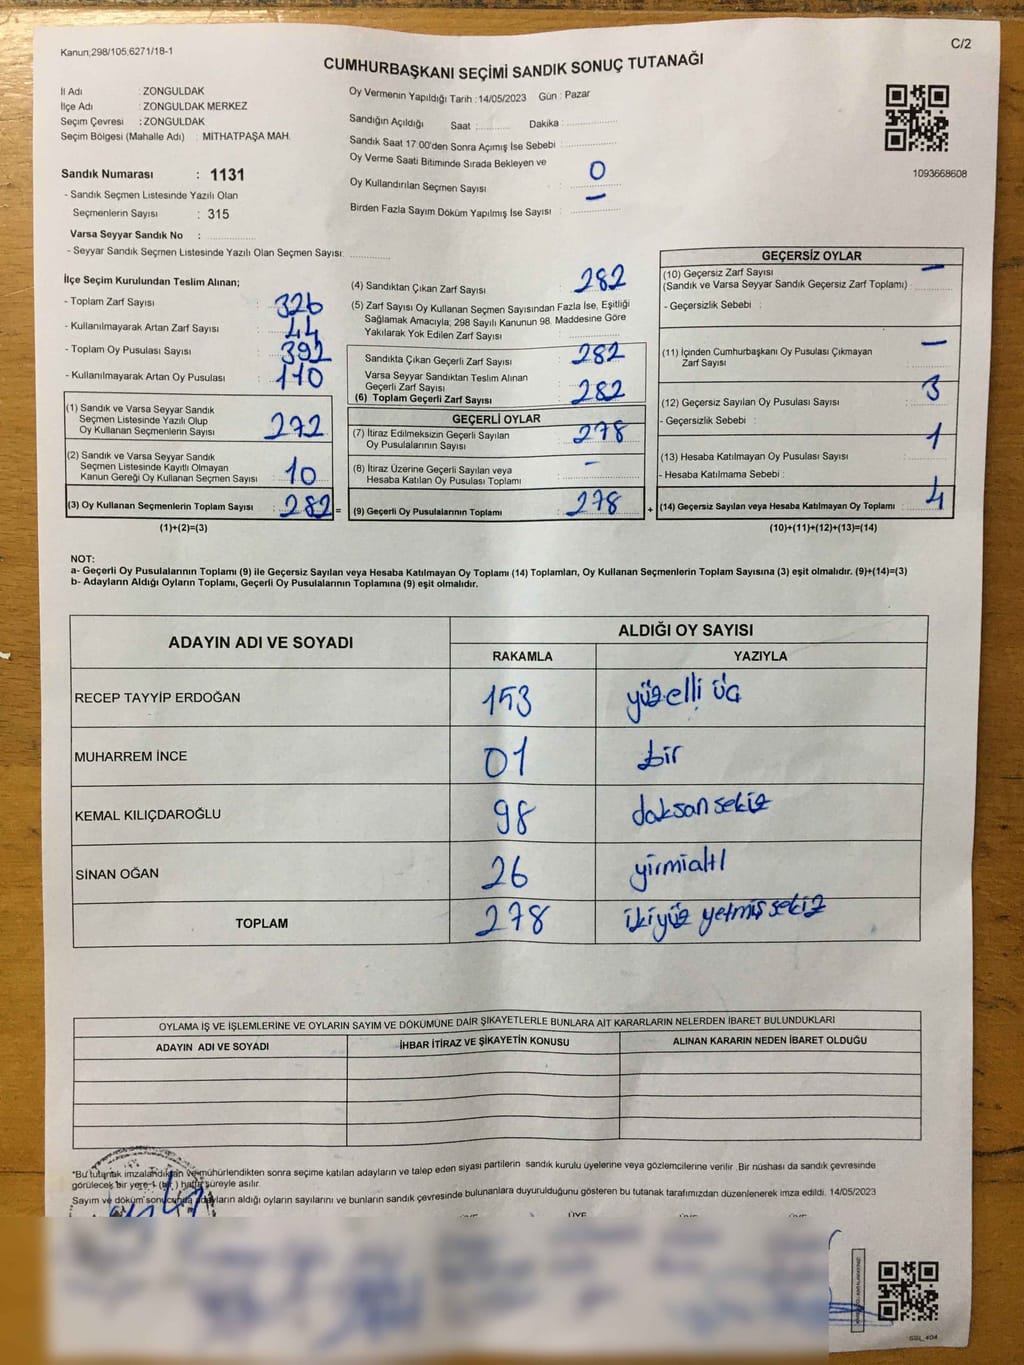 Kanun,298/105,6271/18-1
C/2
CUMHURBAŞKANI SEÇİMİ SANDIK SONUÇ TUTANAĞI
İl Adı : ZONGULDAK
İlçe Adı : ZONGULDAK MERKEZ
Seçim Çevresi : ZONGULDAK
Seçim Bölgesi (Mahalle Adı) : MİTHATPAŞA MAH.
Sandık Numarası : 1131
- Sandık Seçmen Listesinde Yazılı Olan
Seçmenlerin Sayısı : 315
Varsa Seyyar Sandık No :
- Seyyar Sandık Seçmen Listesinde Yazılı Olan Seçmen Sayısı:
Oy Vermenin Yapıldığı Tarih : 14/05/2023 Gün : Pazar
Sandığın Açıldığı Saat : Dakika :
Sandık Saat 17:00'den Sonra Açımış İse Sebebi :
Oy Verme Saati Bitiminde Sırada Bekleyen ve
Oy Kullandırılan Seçmen Sayısı : 0
Birden Fazla Sayım Döküm Yapılmış İse Sayısı : –
1093668608
İlçe Seçim Kurulundan Teslim Alınan;
- Toplam Zarf Sayısı : 326
- Kullanılmayarak Artan Zarf Sayısı : 44
- Toplam Oy Pusulası Sayısı : 392
- Kullanılmayarak Artan Oy Pusulası : 110
(1) Sandık ve Varsa Seyyar Sandık
Seçmen Listesinde Yazılı Olup
Oy Kullanan Seçmenlerin Sayısı : 272
(2) Sandık ve Varsa Seyyar Sandık
Seçmen Listesinde Kayıtlı Olmayan
Kanun Gereği Oy Kullanan Seçmen Sayısı : 10
(3) Oy Kullanan Seçmenlerin Toplam Sayısı : 282 =
(1)+(2)=(3)
(4) Sandıktan Çıkan Zarf Sayısı : 282
(5) Zarf Sayısı Oy Kullanan Seçmen Sayısından Fazla İse, Eşitliği
Sağlamak Amacıyla; 298 Sayılı Kanunun 98. Maddesine Göre
Yakılarak Yok Edilen Zarf Sayısı :
Sandıkta Çıkan Geçerli Zarf Sayısı : 282
Varsa Seyyar Sandıktan Teslim Alınan
Geçerli Zarf Sayısı :
(6) Toplam Geçerli Zarf Sayısı : 282
GEÇERLİ OYLAR
(7) İtiraz Edilmeksizin Geçerli Sayılan
Oy Pusulalarının Sayısı : 278
(8) İtiraz Üzerine Geçerli Sayılan veya
Hesaba Katılan Oy Pusulası Toplamı : –
(9) Geçerli Oy Pusulalarının Toplamı : 278 +
GEÇERSİZ OYLAR
(10) Geçersiz Zarf Sayısı –
(Sandık ve Varsa Seyyar Sandık Geçersiz Zarf Toplamı) :
- Geçersizlik Sebebi :
(11) İçinden Cumhurbaşkanı Oy Pusulası Çıkmayan
Zarf Sayısı : –
(12) Geçersiz Sayılan Oy Pusulası Sayısı : 3
- Geçersizlik Sebebi :
(13) Hesaba Katılmayan Oy Pusulası Sayısı : 1
- Hesaba Katılmama Sebebi :
(14) Geçersiz Sayılan veya Hesaba Katılmayan Oy Toplamı : 4
(10)+(11)+(12)+(13)=(14)
NOT:
a- Geçerli Oy Pusulalarının Toplamı (9) ile Geçersiz Sayılan veya Hesaba Katılmayan Oy Toplamı (14) Toplamları, Oy Kullanan Seçmenlerin Toplam Sayısına (3) eşit olmalıdır. (9)+(14)=(3)
b- Adayların Aldığı Oyların Toplamı, Geçerli Oy Pusulalarının Toplamına (9) eşit olmalıdır.
ADAYIN ADI VE SOYADI ALDIĞI OY SAYISI
RAKAMLA YAZIYLA
RECEP TAYYİP ERDOĞAN 153 yüzelli üç
MUHARREM İNCE 01 bir
KEMAL KILIÇDAROĞLU 98 doksansekiz
SİNAN OĞAN 26 yirmialtı
TOPLAM 278 ikiyüz yetmişsekiz
OYLAMA İŞ VE İŞLEMLERİNE VE OYLARIN SAYIM VE DÖKÜMÜNE DAİR ŞİKAYETLERLE BUNLARA AİT KARARLARIN NELERDEN İBARET BULUNDUKLARI
ADAYIN ADI VE SOYADI İHBAR İTİRAZ VE ŞİKAYETİN KONUSU ALINAN KARARIN NEDEN İBARET OLDUĞU
*Bu tutanak imzalandıktan ve mühürlendikten sonra seçime katılan adayların ve talep eden siyasi partilerin sandık kurulu üyelerine veya gözlemcilerine verilir. Bir nüshası da sandık çevresinde
görülecek bir yere 1 (bir) hafta süreyle asılır.
Sayım ve döküm sonucunda adayların aldığı oyların sayılarını ve bunların sandık çevresinde bulunanlara duyurulduğunu gösteren bu tutanak tarafımızdan düzenlenerek imza edildi. 14/05/2023
ÜYE